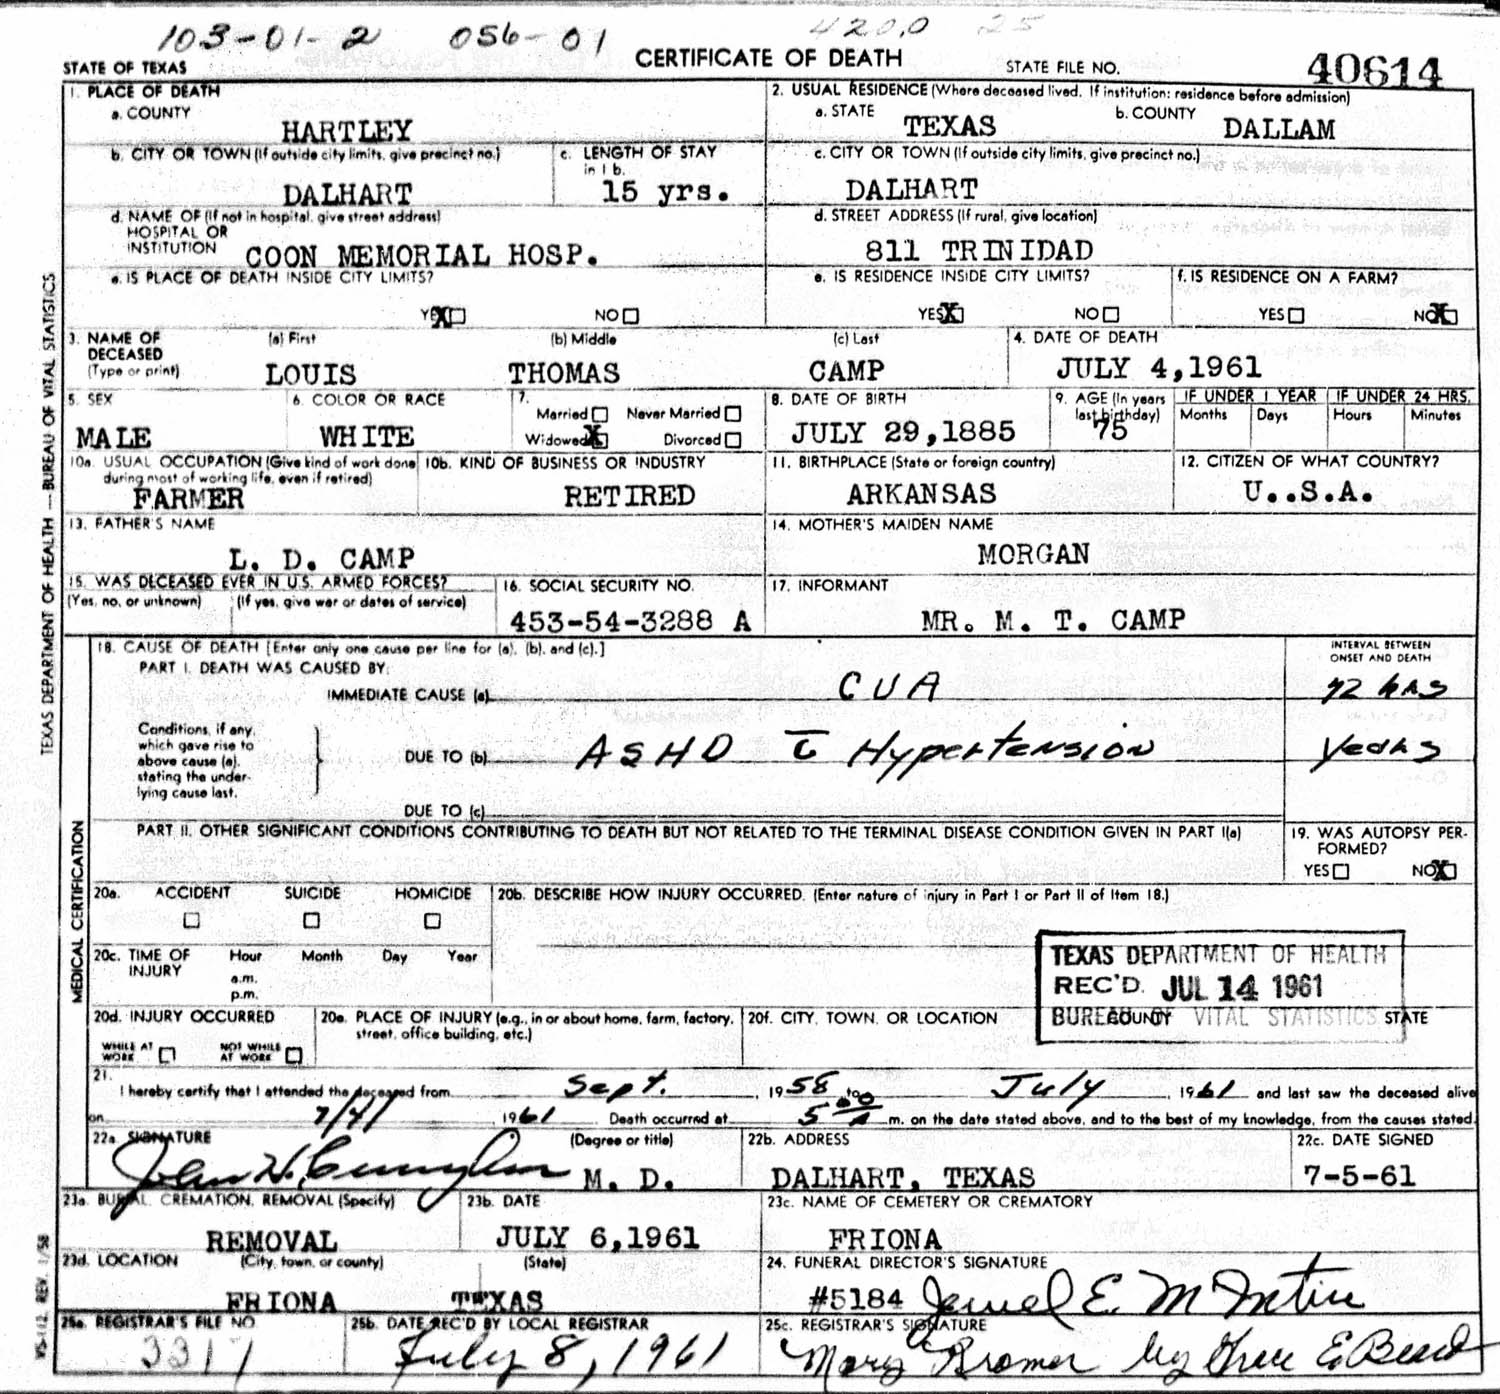 103-01-2 056-01 4200 25
STATE OF TEXAS CERTIFICATE OF DEATH STATE FILE NO. 40614
1. PLACE OF DEATH
a. COUNTY
HARTLEY
2. USUAL RESIDENCE (Where deceased lived. If institution: residence before admission)
a. STATE b. COUNTY
TEXAS DALLAM
b. CITY OR TOWN (If outside city limits, give precinct no.)
DALHART
c. LENGTH OF STAY
in 1 b.
15 yrs.
c. CITY OR TOWN (If outside city limits, give precinct no.)
DALHART
d. NAME OF (If not in hospital, give street address)
HOSPITAL OR
INSTITUTION COON MEMORIAL HOSP.
d. STREET ADDRESS (If rural, give location)
811 TRINIDAD
e. IS PLACE OF DEATH INSIDE CITY LIMITS?
YES X NO
e. IS RESIDENCE INSIDE CITY LIMITS?
YES X NO
f. IS RESIDENCE ON A FARM?
YES NO X
3. NAME OF
DECEASED
(Type or print)
(a) First (b) Middle (c) Last
LOUIS THOMAS CAMP
4. DATE OF DEATH
JULY 4,1961
5. SEX
MALE
6. COLOR OR RACE
WHITE
7.
Married Never Married
Widowed X Divorced
8. DATE OF BIRTH
JULY 29,1885
9. AGE (In years
last birthday)
75
IF UNDER 1 YEAR IF UNDER 24 HRS.
Months Days Hours Minutes
10a. USUAL OCCUPATION (Give kind of work done
during most of working life, even if retired)
FARMER
10b. KIND OF BUSINESS OR INDUSTRY
RETIRED
11. BIRTHPLACE (State or foreign country)
ARKANSAS
12. CITIZEN OF WHAT COUNTRY?
U..S.A.
13. FATHER'S NAME
L. D. CAMP
14. MOTHER'S MAIDEN NAME
MORGAN
15. WAS DECEASED EVER IN U.S. ARMED FORCES?
(Yes, no, or unknown) (If yes, give war or dates of service)
16. SOCIAL SECURITY NO.
453-54-3288 A
17. INFORMANT
MR. M. T. CAMP
18. CAUSE OF DEATH [Enter only one cause per line for (a), (b), and (c).]
PART I. DEATH WAS CAUSED BY:
INTERVAL BETWEEN
ONSET AND DEATH
IMMEDIATE CAUSE (a) CUA 72 hrs
Conditions, if any,
which gave rise to
above cause (a),
stating the under-
lying cause last.
DUE TO (b) ASHD c̄ Hypertension Years
DUE TO (c)
PART II. OTHER SIGNIFICANT CONDITIONS CONTRIBUTING TO DEATH BUT NOT RELATED TO THE TERMINAL DISEASE CONDITION GIVEN IN PART I(a)
19. WAS AUTOPSY PER-
FORMED?
YES NO X
20a. ACCIDENT SUICIDE HOMICIDE
20b. DESCRIBE HOW INJURY OCCURRED. (Enter nature of injury in Part I or Part II of Item 18.)
20c. TIME OF
INJURY
Hour Month Day Year
a.m.
p.m.
TEXAS DEPARTMENT OF HEALTH
REC'D. JUL 14 1961
BUREAU OF VITAL STATISTICS
20d. INJURY OCCURRED
WHILE AT
WORK
NOT WHILE
AT WORK
20e. PLACE OF INJURY (e.g., in or about home, farm, factory,
street, office building, etc.)
20f. CITY, TOWN, OR LOCATION COUNTY STATE
21.
I hereby certify that I attended the deceased from Sept. , 1958 to July , 1961 and last saw the deceased alive
on 7/4/ 1961 Death occurred at 5 00 A m. on the date stated above, and to the best of my knowledge, from the causes stated.
22a. SIGNATURE (Degree or title)
John W. M. D.
22b. ADDRESS
DALHART, TEXAS
22c. DATE SIGNED
7-5-61
23a. BURIAL, CREMATION, REMOVAL (Specify)
REMOVAL
23b. DATE
JULY 6,1961
23c. NAME OF CEMETERY OR CREMATORY
FRIONA
23d. LOCATION (City, town, or county) (State)
FRIONA TEXAS
24. FUNERAL DIRECTOR'S SIGNATURE
#5184 Jewel E. McIntire
25a. REGISTRAR'S FILE NO.
3317
25b. DATE REC'D BY LOCAL REGISTRAR
July 8, 1961
25c. REGISTRAR'S SIGNATURE
Mary Bromer by E. Beard
TEXAS DEPARTMENT OF HEALTH — BUREAU OF VITAL STATISTICS
MEDICAL CERTIFICATION
VS-112 REV. 1/58